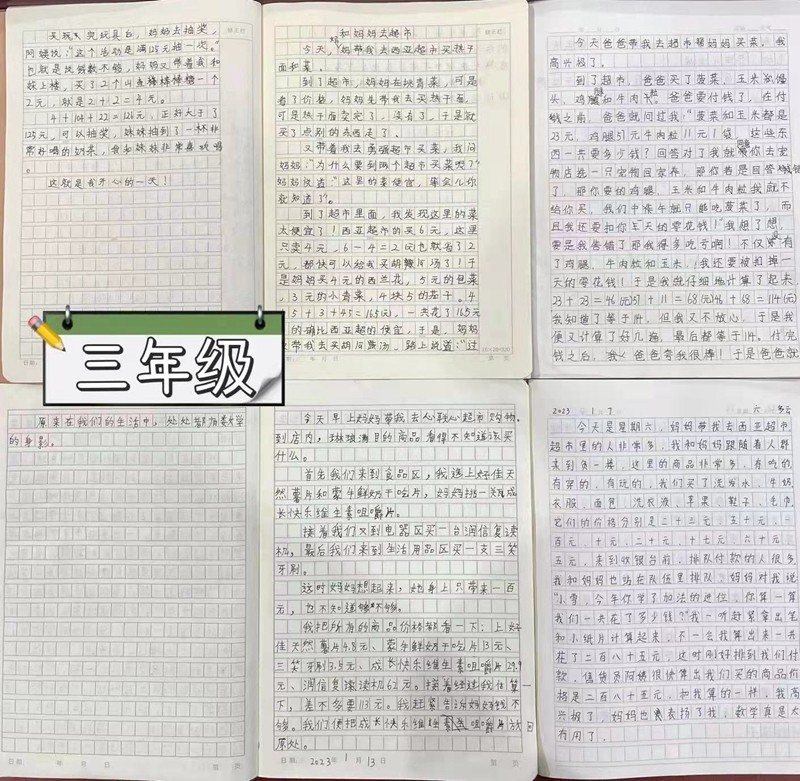 买玩具。兑玩具台，妈妈去抽奖，
阿姨说："这个活动是满125元抽一次。"
可就是钱数不够，妈妈又带着我和
妹上楼，买了2个叫佳棒棒棒糖一个
2元，就是2+2=4元。
4+104+22=126元，正好大于了
125元，可以抽奖，妹妹抽到了一杯非
常好喝的奶茶，我和妹妹非常喜欢喝
。
这就是我开心的一天！
和妈妈去超市
今天，妈妈带我去西亚超市买热干
面和菜。
到了超市，妈妈在挑青菜，可是
看了价格，妈妈先带我去买热干面，
可是热干面卖完了，没有了，于是就
买了点别的东西走了。
又带着我去勇强超市买菜，我问
妈妈："为什么要到两个超市买菜呢？"
妈妈说道："这里的菜便宜，集会儿你
就知道了。
到了超市里面，我发现这里的菜
太便宜了！西亚超市的买6元，这里
只卖4元，6-4=2元也就省了2
元，都快可以给我买胡辣汤了！于
是妈妈买4元的西兰花，5元的包菜
，3元的小青菜，4块5的茄子。4
+5+3+4.5=16.5(元)，一共花了16.5元
，的确比西亚超的便宜，于是，妈妈
又带我去买胡辣汤，路上说道："过
日期： 年 月 日
18×20=320
三年级
今天爸爸带我去超市帮妈妈买菜，我
高兴极了。
到了超市，爸爸买了菠菜、玉米、馒
头、鸡腿和牛肉粒，爸爸要付钱了，在付
钱之前，爸爸就问过我："菠菜和玉米都是
23元，鸡腿57元牛肉粒11元1袋，这些东
西一共要多少钱？回答对了我就带你去宠
物店选一只宠物回家养，那你若是回答错
了，那你要的鸡腿、玉米和牛肉粒我就不
给你买，我们中午就只能吃菠菜了，而
且我还要扣你一天的零花钱！"我想了想，
要是我答错了那我得多吃亏啊！不仅没有
了鸡腿、牛肉粒和玉米，我还要被扣掉一
天的零花钱！于是我就仔细地计算了起来，
23+23=46(元)57+11=68(元)46+68=114(元)
我知道了等于114，但我又不放心，于是我
便又计算了好几遍，最后都等于114。付完
钱之后，我爸爸夸我很棒！于是爸爸就
原来在我们的生活中，处处都有数学
的身影。
日期： 年 月 日
今天早上妈妈带我去心联心超市购物。
到店内，琳琅满目的商品看得不知道该买
什么。
首先我们来到食品区，我选上好佳天
然薯片和蒙牛鲜奶干吃片，妈妈挑一瓶成
长快乐维生素咀嚼片。
接着我们又到电器区买一台润信复读
机，最后我们来到生活用品区买一支三笑
牙刷。
这时妈妈想起来，她身上只带来一百
元，也不知道够不够。
我把所有的商品价格都看一下：上好
佳天然薯片4.8元、蒙牛鲜奶干吃片13元、
三笑牙刷3.5元、成长快乐维生素咀嚼片29.9
元、润信复读机62元。接着经过我估算一
下，差不多要113元。我赶紧告诉妈妈钱不
够。我们便把成长快乐维生素咀嚼片放回
原处。
日期： 2023年 1 月 13
2023 1月7 六 多云
今天是星期六，妈妈带我去西亚超市，
超市里的人非常多，我和妈妈跟随着人群
来到货一楼，这里的商品非常多，有吃的，
有穿的，有玩的，我们买了洗发水、牛奶、
衣服、面包、洗衣液、苹果、鞋子、毛巾，
它们的价格分别是二十三元、五十元、一百
元、十元、二十元、十七元、六十元、
五元，来到收银台前，排队付款的人很多，
我和妈妈也站在队伍里排队，妈妈对我说：
"小雪，今年你学了加法的进位，你算一算
我们一共花了多少钱？"我一听赶紧拿出笔
和小纸片计算起来，不一会我算出来一共
花了二百八十五元，这时刚好排到我们付
款，售货员阿姨很快算出我们买的商品价
格是二百八十五元，和我算的一样，我高
兴极了，妈妈也表扬了我，数学真是太
有用了。